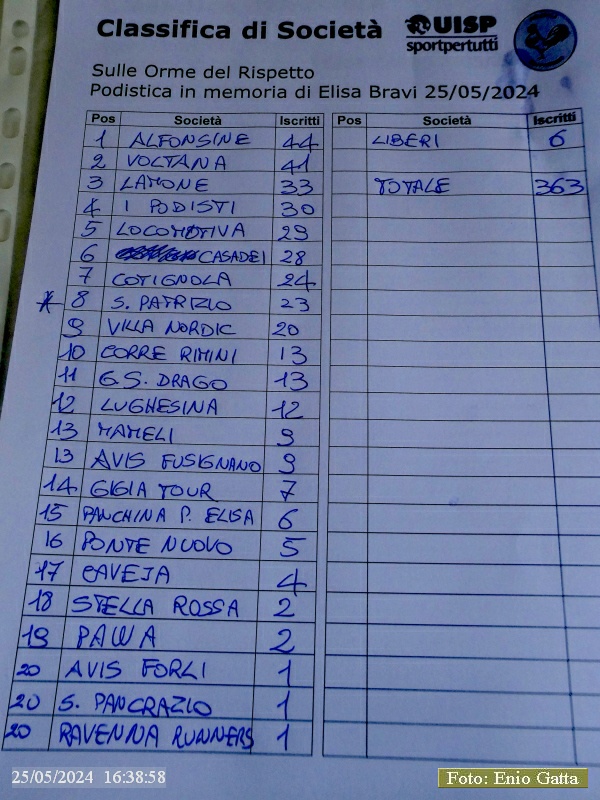 Classifica di Società
UISP
sportpertutti
Sulle Orme del Rispetto
Podistica in memoria di Elisa Bravi 25/05/2024
Pos Società Iscritti Pos Società Iscritti
1 ALFONSINE 44 LIBERI 6
2 VOLTANA 41
3 LAMONE 33 TOTALE 363
4 I PODISTI 30
5 LOCOMOTIVA 29
6 CASADEI 28
7 COTIGNOLA 24
* 8 S. PATRIZIO 23
9 VILLA NORDIC 20
10 CORRE RIMINI 13
11 G.S. DRAGO 13
12 LUGHESINA 12
13 MAMELI 9
13 AVIS FUSIGNANO 9
14 GIGIA TOUR 7
15 PANCHINA P. ELISA 6
16 PONTE NUOVO 5
17 CAVEJA 4
18 STELLA ROSSA 2
19 2
20 AVIS FORLI 1
20 S. PANCRAZIO 1
20 RAVENNA RUNNERS 1
25/05/2024 16:38:58
Foto: Enio Gatta